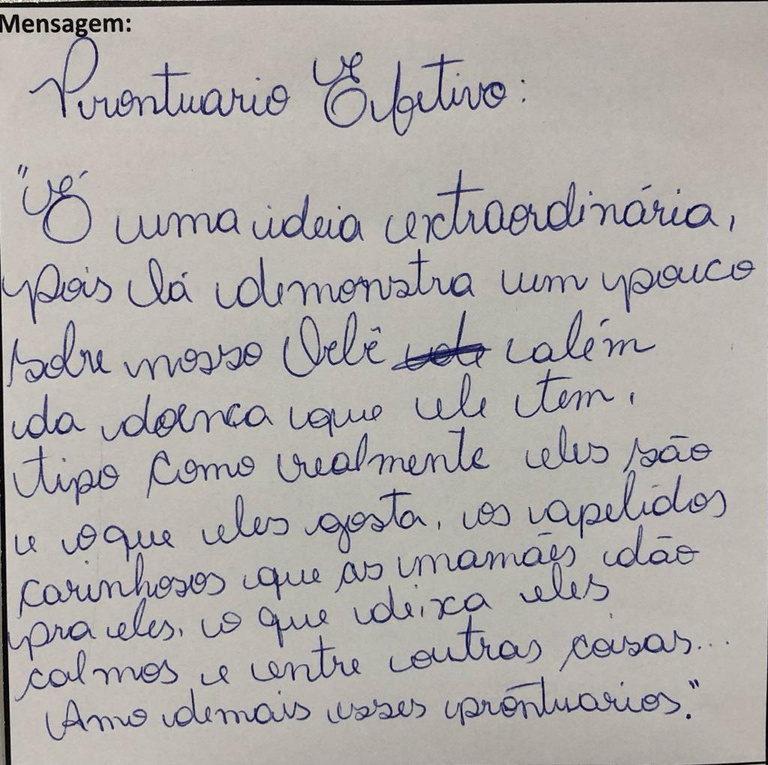 Mensagem:
Prontuario Efetivo:
"É uma ideia extraordinária,
pois lá demonstra um pouco
sobre nosso Bebê além
da doença que ele tem,
tipo como realmente eles são
e o que eles gosta, os apelidos
carinhosos que as mamães dão
pra eles, o que deixa eles
calmos e entre outras coisas...
Amo demais esses prontuarios."